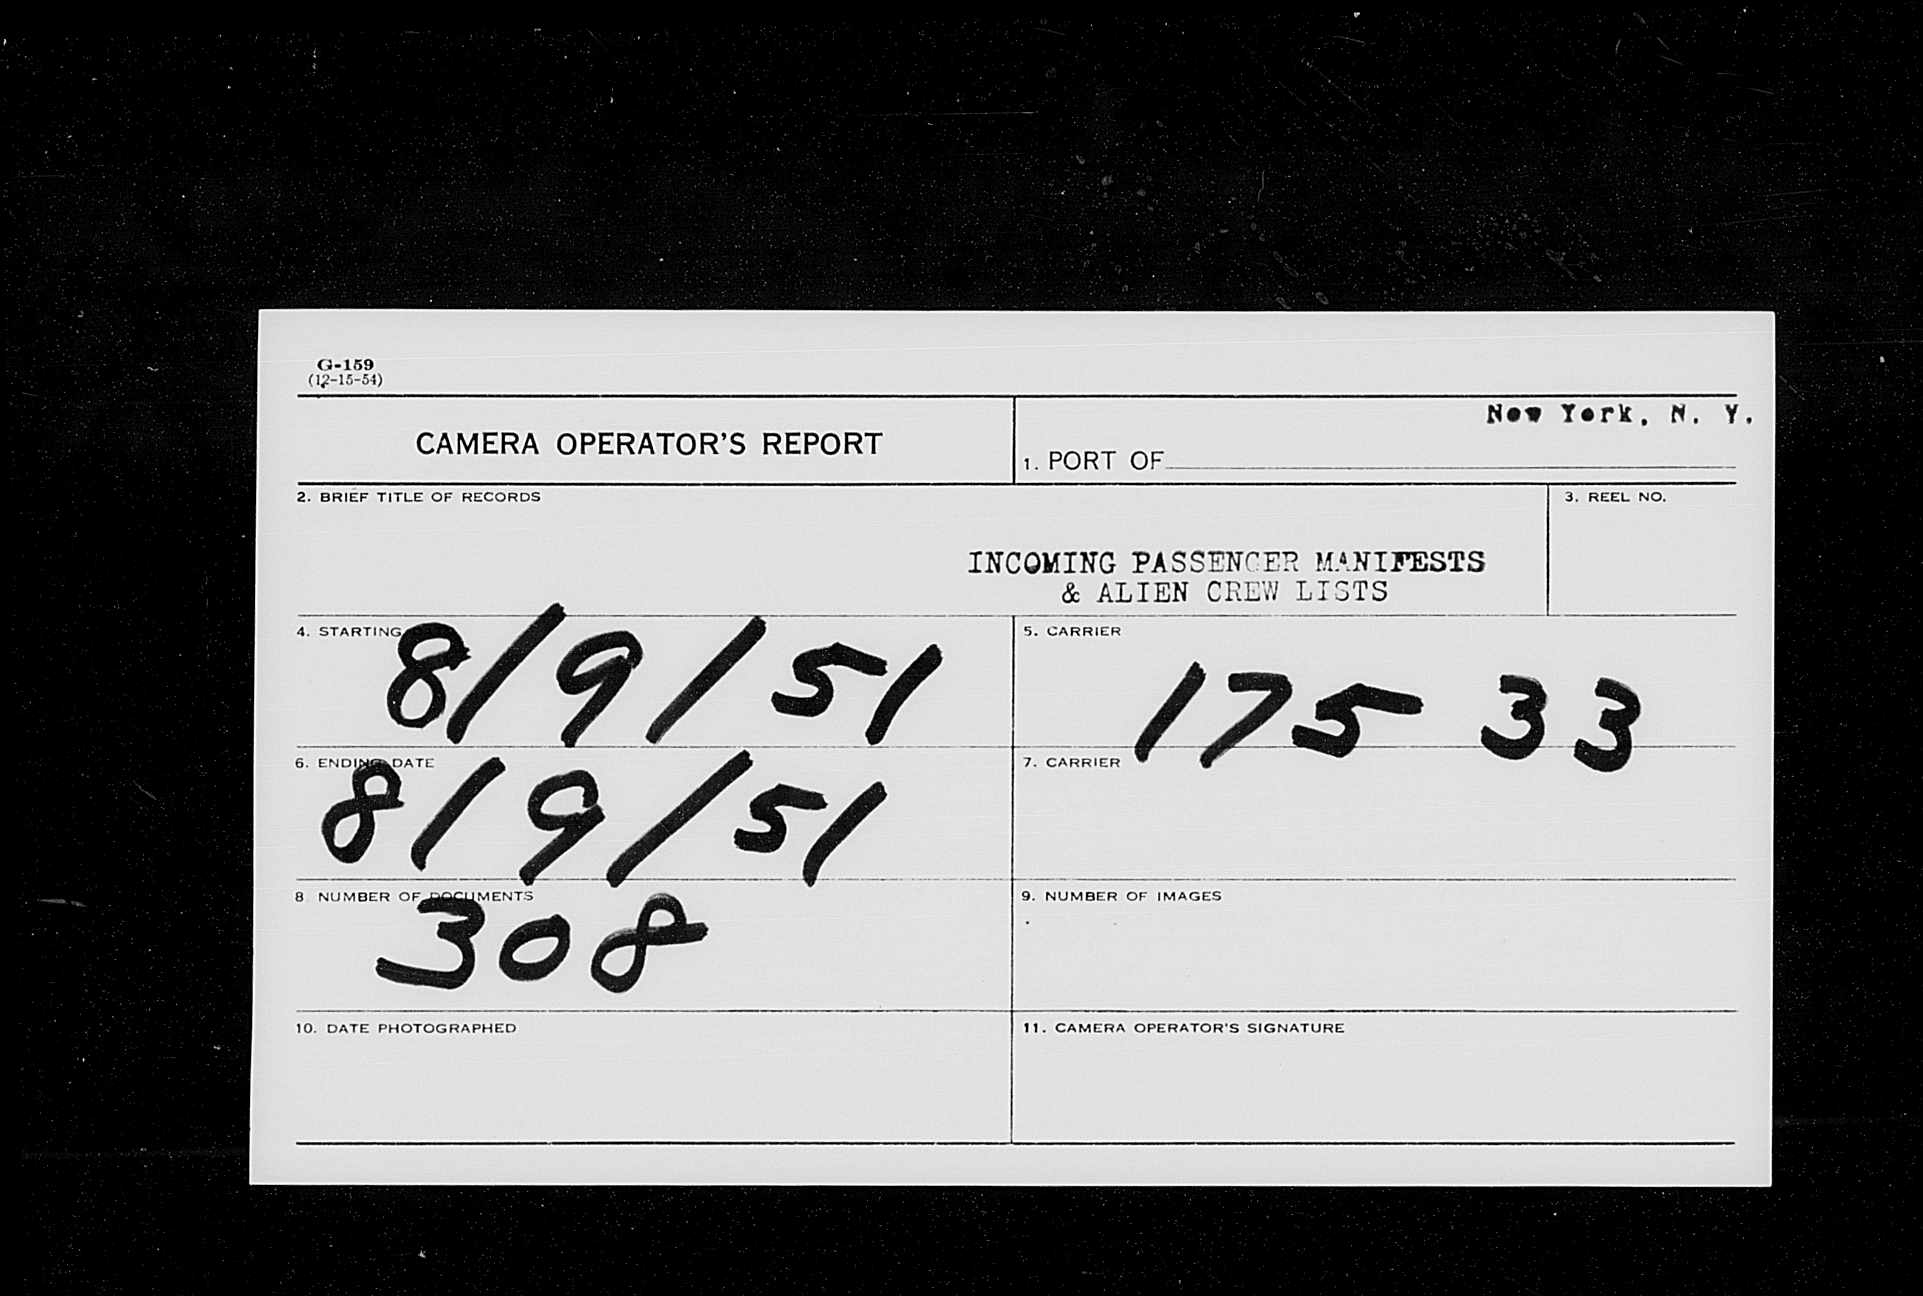 G-159
(12-15-54)
CAMERA OPERATOR'S REPORT
New York, N. Y.
1. PORT OF
2. BRIEF TITLE OF RECORDS
3. REEL NO.
INCOMING PASSENGER MANIFESTS
& ALIEN CREW LISTS
4. STARTING
8/9/51
5. CARRIER
175 33
6. ENDING DATE
8/9/51
7. CARRIER
8 NUMBER OF DOCUMENTS
308
9. NUMBER OF IMAGES
10. DATE PHOTOGRAPHED
11. CAMERA OPERATOR'S SIGNATURE